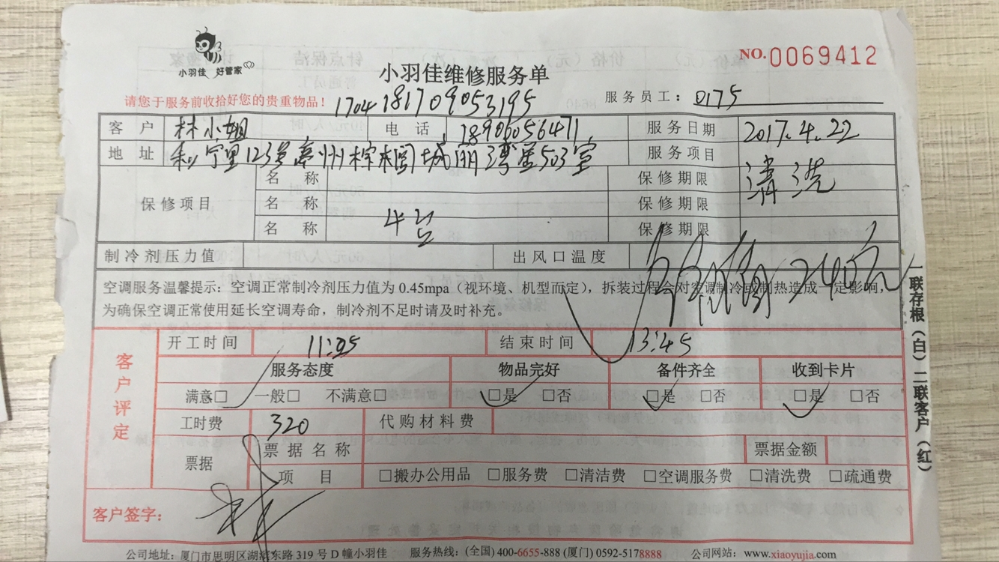 小羽佳 好管家
NO.0069412
小羽佳维修服务单
请您于服务前收拾好您的贵重物品! 1704 181709053195 服务员工: 0175
客户 林小姐 电话 18906056471 服务日期 2017.4.22
地址 宁里123号 州槟榔城丽湾 503室 服务项目 清洗
保修项目 名称 保修期限
名称 4台 保修期限
名称 保修期限
制冷剂压力值 出风口温度
240元
空调服务温馨提示: 空调正常制冷剂压力值为 0.45mpa (视环境、机型而定), 拆装过程会对空调制冷或制热造成一定影响,
为确保空调正常使用延长空调寿命, 制冷剂不足时请及时补充。
一联存根(白)二联客户(红)
客户评定
开工时间 11:05 结束时间 13:45
服务态度 物品完好 备件齐全 收到卡片
满意□ 一般□ 不满意□ □是 □否 □是 □否 □是 □否
工时费 320 代购材料费
票据 票据名称 票据金额
项目 □搬办公用品 □服务费 □清洁费 □空调服务费 □清洗费 □疏通费
客户签字:
公司地址: 厦门市思明区湖滨东路 319 号 D 幢小羽佳 服务热线: (全国) 400-6655-888 (厦门) 0592-5178888 公司网站: www.xiaoyujia.com